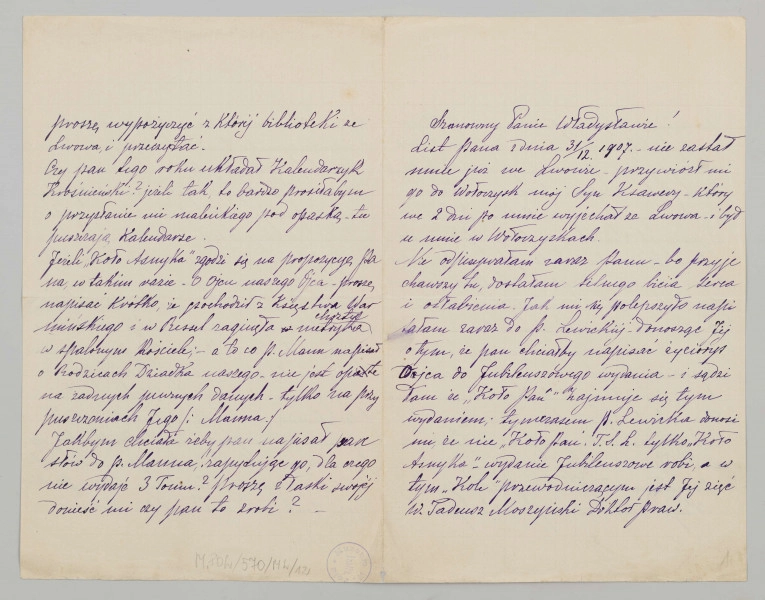 proszę wypożyczyć z której biblioteki ze
Lwowa, i przeczytać.
Czy pan tego roku układał Kalendarzyk
Krośnieński? jeżeli tak, to bardzo prosiłabym
o przysłanie mi maleńkiego pod opaską - tu
puszczają Kalendarze.
Jeżeli "Koło Asnyka" zgodzi się na propozycyę Pa
na, w takim razie - O Ojcu naszego Ojca - proszę
napisać krótko, że pochodził z Księstwa War
mińskiego i w Pressel zaginęła metryka
chrztu
w spalonym Kościele; - a to co p. Mann napisał
o Rodzicach Dziadka naszego - nie jest oparte
na żadnych pewnych danych - tylko na przy
puszczeniach Jego /: Manna :/
Jakbym chciała żeby pan napisał parę
słów do p. Manna, zapytując go, dla czego
nie wydaje 3 Tomu? Proszę z łaski swojej
donieść mi czy pan to zrobi? -
M.204/570/ML/
Szanowny Panie Władysławie!
List Pana z dnia 31/12. 1907. - nie zastał
mnie już we Lwowie - przywiózł mi
go do Wołoczysk mój Syn Ksawery - który
we 2 dni po mnie wyjechał ze Lwowa - i był
u mnie w Wołoczyskach.
Nie odpisywałam zaraz Panu - bo przyje
chawszy tu, dostałam silnego bicia serca
i osłabienia. Jak mi się polepszyło napi
sałam zaraz do p. Lewickiej - donosząc Jej
o tym, że pan chciałby napisać życiorys
Ojca do Jubileuszowego wydania - i sądzi
łam że "Koło Pań" zajmuje się tym
wydaniem; tymczasem p. Lewicka donosi
mi że nie "Koło Pań" T.S.L. tylko "Koło
Asnyka" - wydanie Jubileuszowe robi, a w
tym "Kole" przewodniczącym jest Jej zięć
W. Tadeusz Moszyński Doktor Praw.